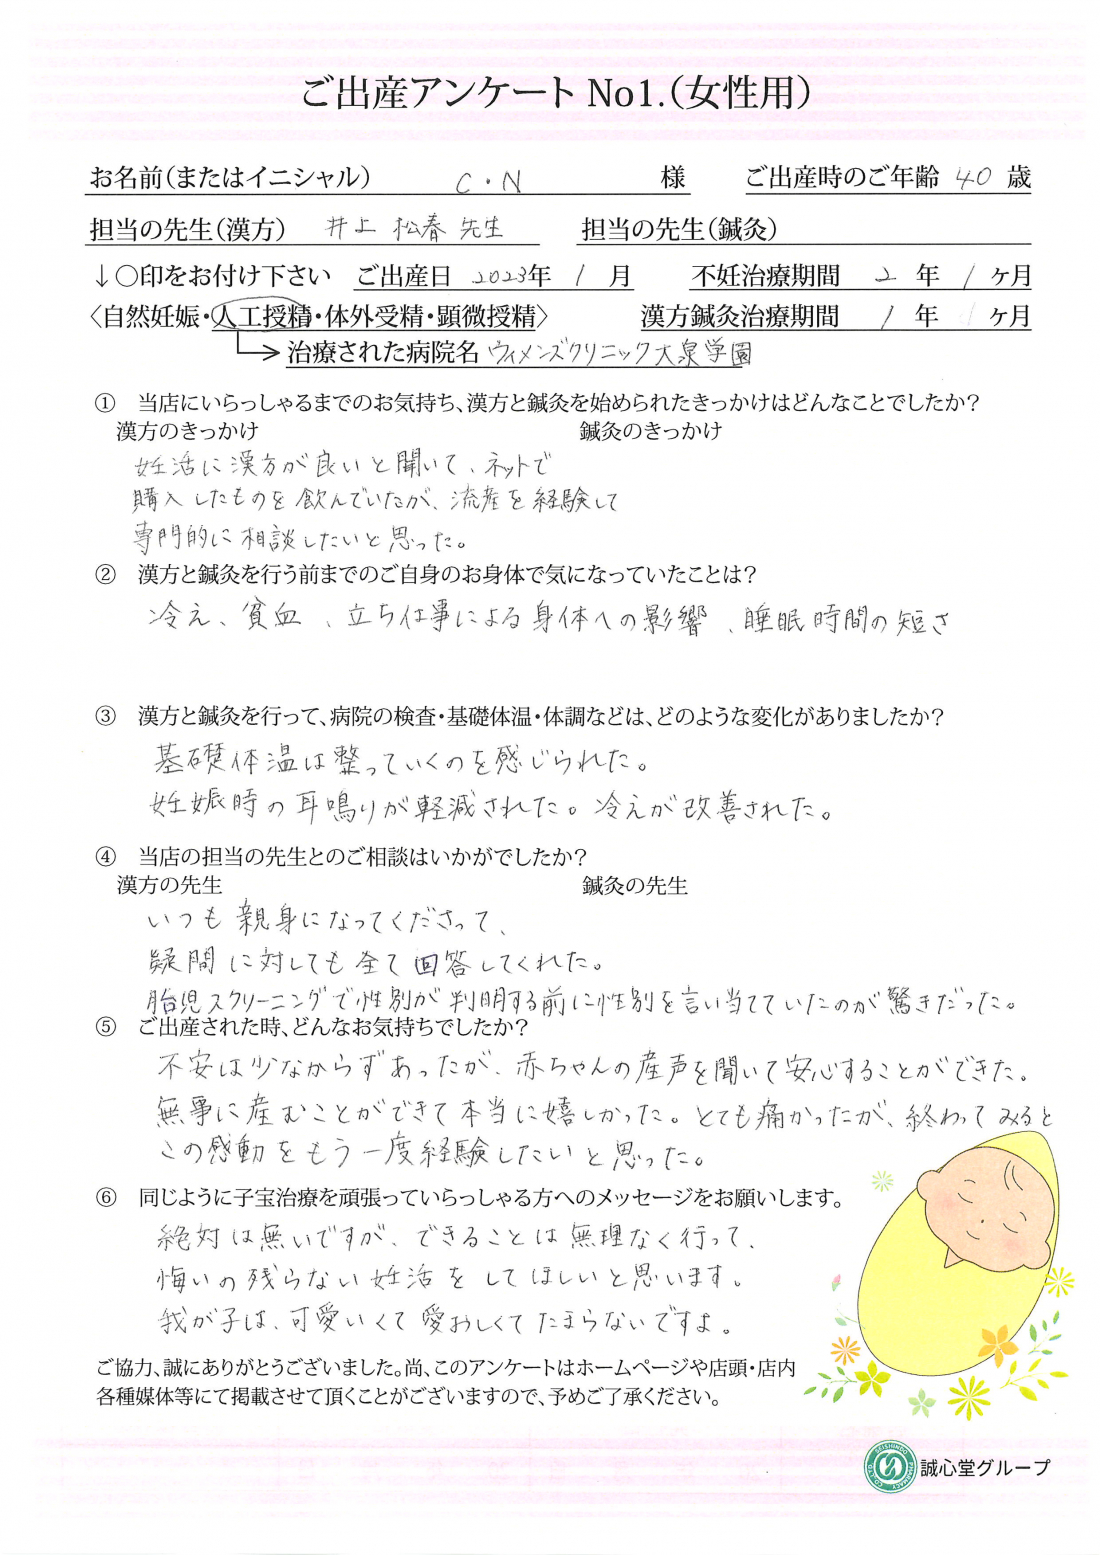 ご出産アンケート No1.(女性用)
お名前(またはイニシャル) C・N 様 ご出産時のご年齢 40 歳
担当の先生(漢方) 井上 松春 先生 担当の先生(鍼灸)
↓○印をお付け下さい ご出産日 2023年 1 月 不妊治療期間 2 年 1 ヶ月
〈自然妊娠・人工授精・体外受精・顕微授精〉 漢方鍼灸治療期間 1 年 1 ヶ月
治療された病院名 ウィメンズクリニック大泉学園
① 当店にいらっしゃるまでのお気持ち、漢方と鍼灸を始められたきっかけはどんなことでしたか?
漢方のきっかけ 鍼灸のきっかけ
妊活に漢方が良いと聞いて、ネットで
購入したものを飲んでいたが、流産を経験して
専門的に相談したいと思った。
② 漢方と鍼灸を行う前までのご自身のお身体で気になっていたことは?
冷え、貧血、立ち仕事による身体への影響、睡眠時間の短さ
③ 漢方と鍼灸を行って、病院の検査・基礎体温・体調などは、どのような変化がありましたか?
基礎体温は整っていくのを感じられた。
妊娠時の耳鳴りが軽減された。冷えが改善された。
④ 当店の担当の先生とのご相談はいかがでしたか?
漢方の先生 鍼灸の先生
いつも親身になってくださって、
疑問に対しても全て回答してくれた。
胎児スクリーニングで性別が判明する前に性別を言い当てていたのが驚きだった。
⑤ ご出産された時、どんなお気持ちでしたか?
不安は少なからずあったが、赤ちゃんの産声を聞いて安心することができた。
無事に産むことができて本当に嬉しかった。とても痛かったが、終わってみると
この感動をもう一度経験したいと思った。
⑥ 同じように子宝治療を頑張っていらっしゃる方へのメッセージをお願いします。
絶対は無いですが、できることは無理なく行って、
悔いの残らない妊活をしてほしいと思います。
我が子は、可愛いくて愛おしくてたまらないですよ。
ご協力、誠にありがとうございました。尚、このアンケートはホームページや店頭・店内
各種媒体等にて掲載させて頂くことがございますので、予めご了承ください。
SEISHINDO PHARMACY CO.LTD
誠心堂グループ